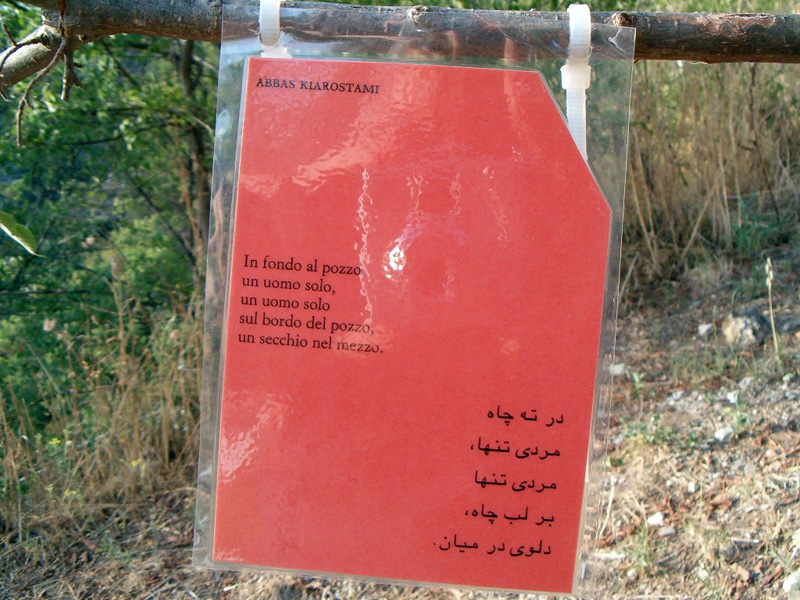 ABBAS KIAROSTAMI
In fondo al pozzo
un uomo solo,
un uomo solo
sul bordo del pozzo,
un secchio nel mezzo.
در ته چاه
مردی تنها،
مردی تنها
بر لب چاه،
دلوی در میان.